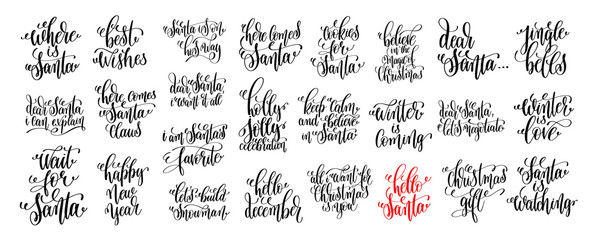 where
is
Santa
best
wishes
Santa is on
his way
here comes
Santa
cookies
for
Santa
believe
in the
magic of
Christmas
dear
Santa...
jingle
bells
dear Santa
i can explain
here comes
Santa
claus
dear Santa
i want it all
i am Santa's
favorite
holly
Jolly
celebration
keep calm
and believe
in Santa
winter
is
coming
dear Santa,
let's negotiate
winter
is
love
wait
for
Santa
happy
new
year
let's build
snowman
hello
december
all i want for
Christmas
is you
hello
Santa
Christmas
gift
Santa
is
watching